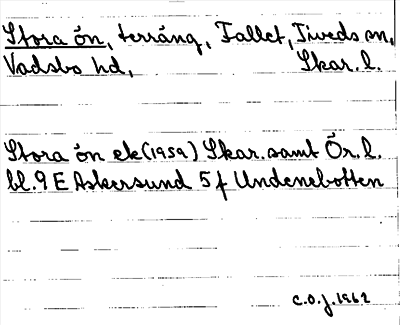 Stora ön, terräng, Fallet, Tiveds sn,
Vadsbo hd, Skar. l.
Stora ön ek (1959) Skar. samt Ör. l.
bl. 9 E Askersund 5 f Undenebotten
C.O.J. 1962